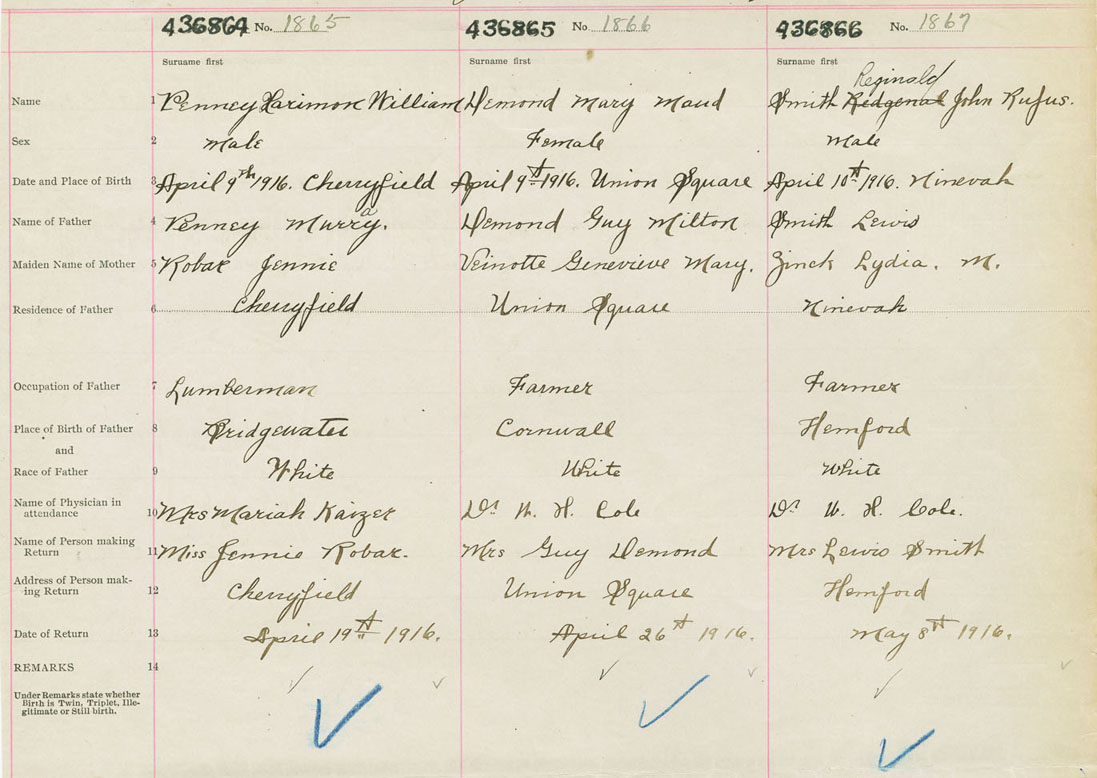 436864 No. 1865 436865 No 1866 436866 No. 1867
Surname first Surname first Surname first
Reginald
Name 1 Penney Larimon William Demond Mary Maud Smith Redgenal John Rufus.
Sex 2 Male Female Male
Date and Place of Birth 3 April 9th 1916. Cherryfield April 9th 1916. Union Square April 10th 1916. Ninevah
Name of Father 4 Penney Murray. Demond Guy Milton Smith Lewis
Maiden Name of Mother 5 Robar Jennie Veinotte Genevieve Mary. Zinck Lydia. M.
Residence of Father 6 Cherryfield Union Square Ninevah
Occupation of Father 7 Lumberman Farmer Farmer
Place of Birth of Father 8 Bridgewater Cornwall Hemford
and
Race of Father 9 White White White
Name of Physician in
attendance 10 Mrs Mariah Kaizer Dr H. H. Cole Dr H. Cole.
Name of Person making
Return 11 Miss Jennie Robar. Mrs Guy Demond Mrs Lewis Smith
Address of Person mak-
ing Return 12 Cherryfield Union Square Hemford
Date of Return 13 April 19th 1916. April 26th 1916. May 8th 1916.
REMARKS 14
Under Remarks state whether
Birth is Twin, Triplet, Ille-
gitimate or Still birth.